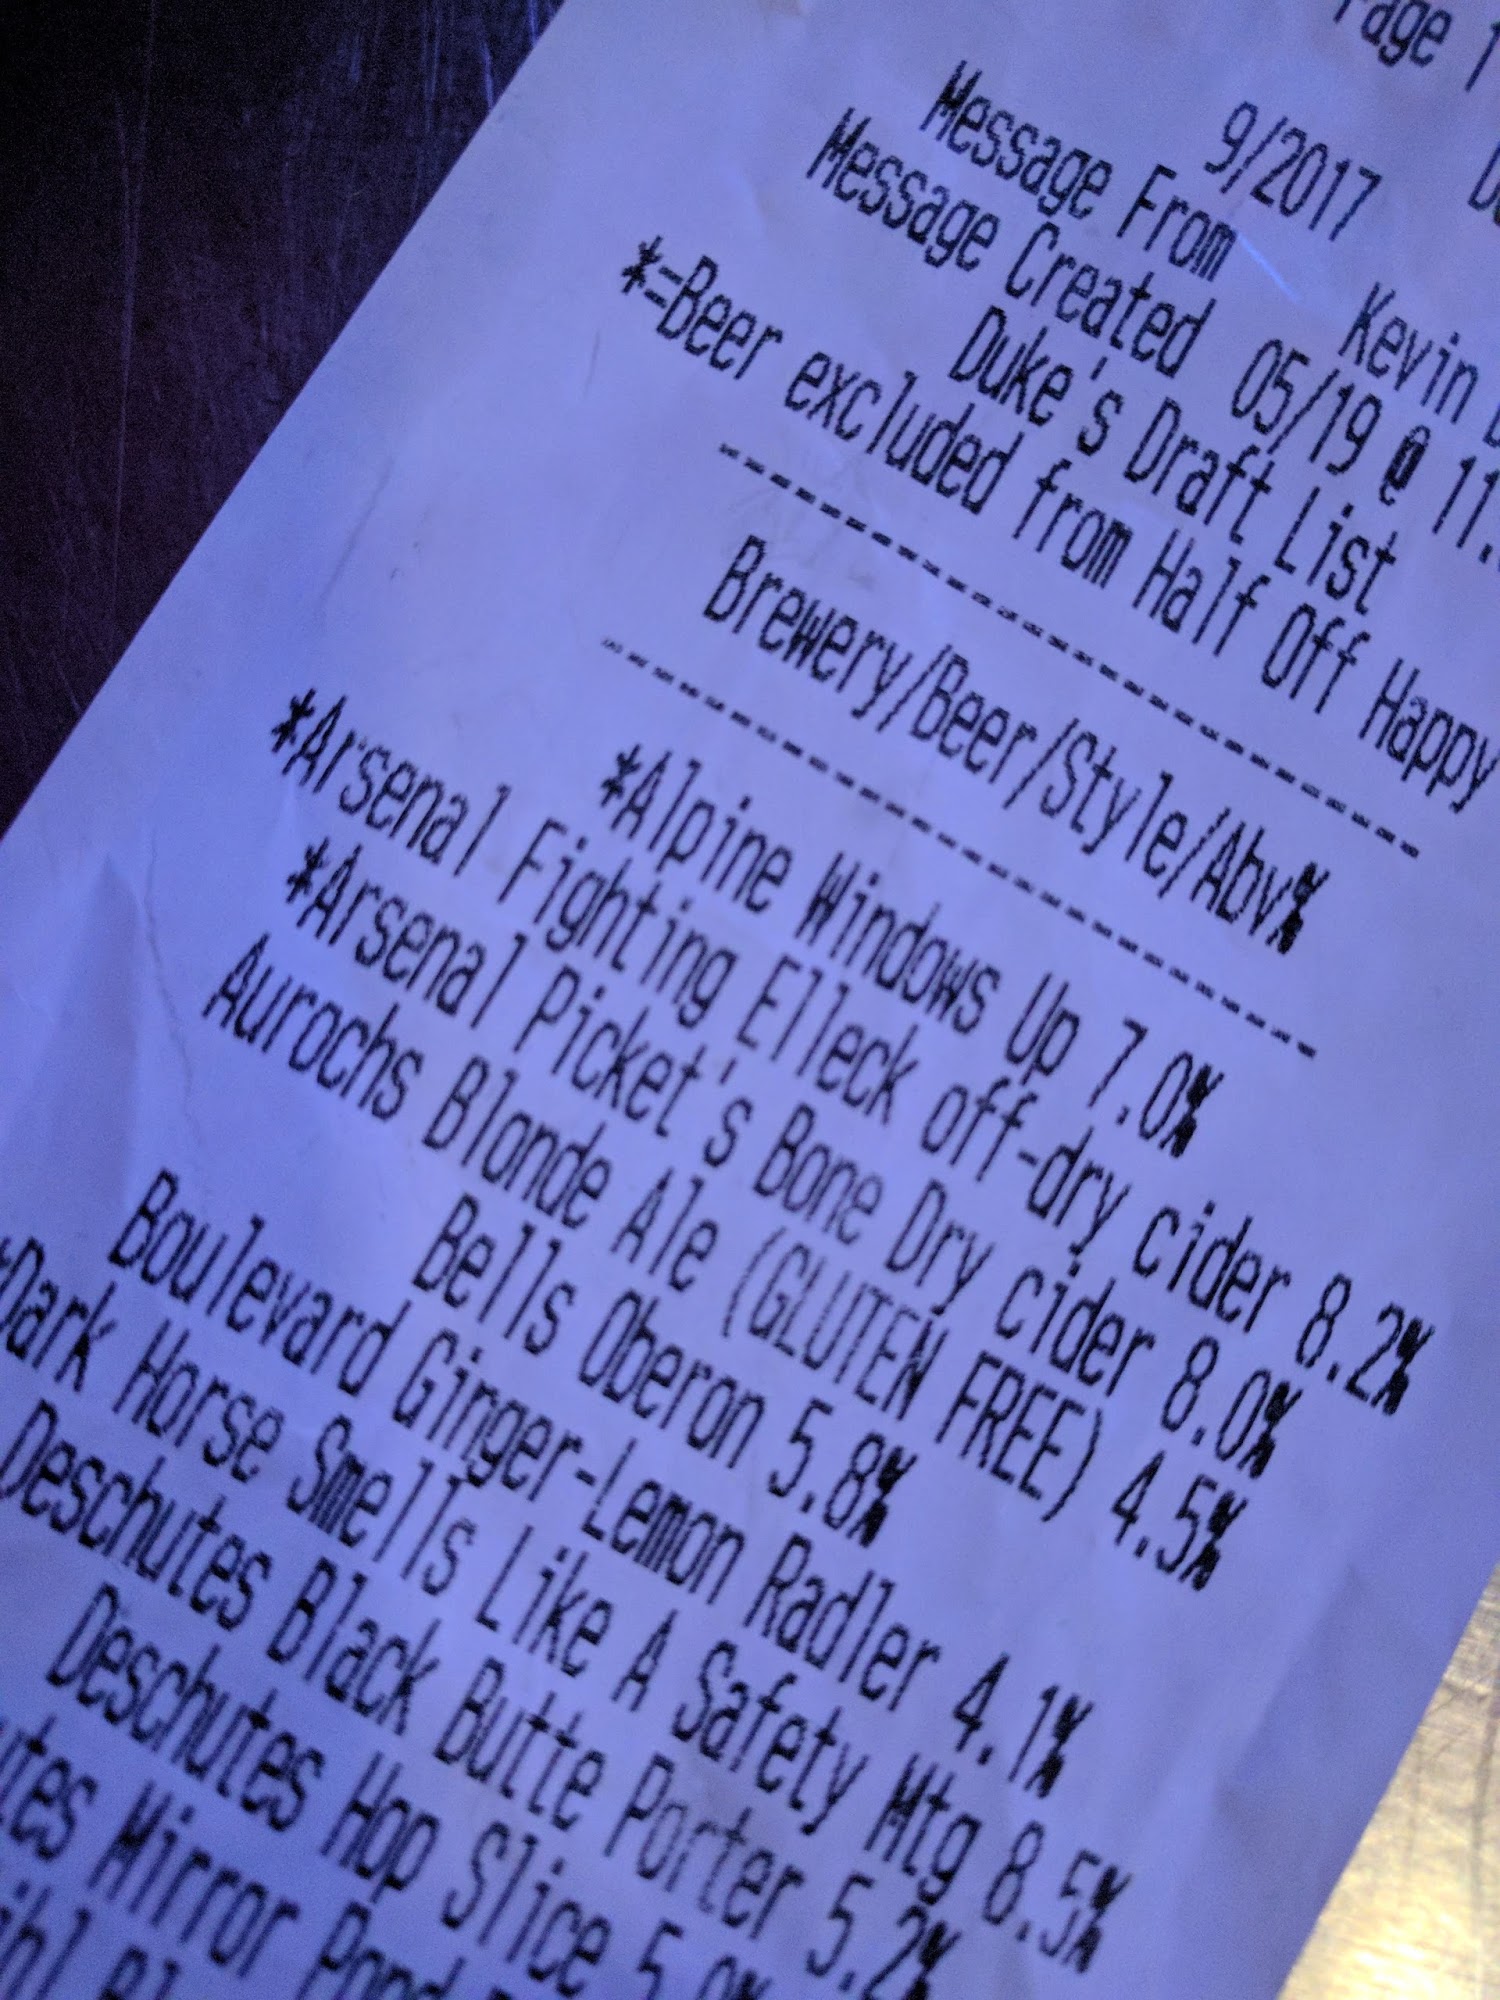 Page 1
9/2017
Message From Kevin
Message Created 05/19 @ 11
Duke's Draft List
*=Beer excluded from Half Off Happy
--------------------------------
Brewery/Beer/Style/Abv%
--------------------------------
*Alpine Windows Up 7.0%
*Arsenal Fighting Elleck off-dry cider 8.2%
*Arsenal Picket's Bone Dry cider 8.0%
Aurochs Blonde Ale (GLUTEN FREE) 4.5%
Bells Oberon 5.8%
Boulevard Ginger-Lemon Radler 4.1%
*Dark Horse Smells Like A Safety Mtg 8.5%
Deschutes Black Butte Porter 5.2%
Deschutes Hop Slice 5.0%
Mirror Pond